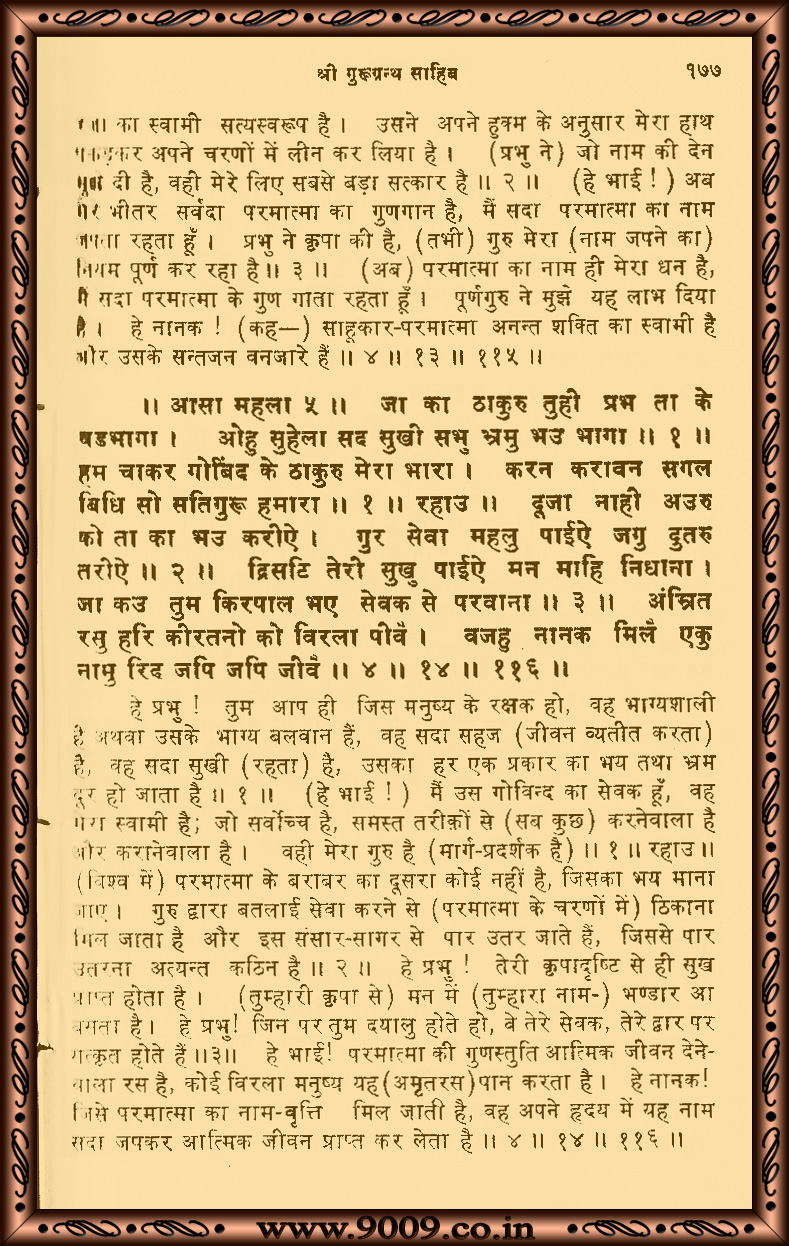 श्री गुरूग्रन्थ साहिब १७७
का स्वामी सत्यस्वरूप है । उसने अपने हुक्म के अनुसार मेरा हाथ
पकड़कर अपने चरणों में लीन कर लिया है । (प्रभु ने) जो नाम की देन
मुझे दी है, वही मेरे लिए सबसे बड़ा सत्कार है ॥ २ ॥ (हे भाई ! ) अब
मेरे भीतर सर्वदा परमात्मा का गुणगान है, मैं सदा परमात्मा का नाम
जपता रहता हूँ । प्रभु ने कृपा की है, (तभी) गुरु मेरा (नाम जपने का)
नियम पूर्ण कर रहा है ॥ ३ ॥ (अब) परमात्मा का नाम ही मेरा धन है,
मैं सदा परमात्मा के गुण गाता रहता हूँ । पूर्णगुरु ने मुझे यह लाभ दिया
है । हे नानक ! (कह—) साहूकार-परमात्मा अनन्त शक्ति का स्वामी है
और उसके सन्तजन वनजारे हैं ॥ ४ ॥ १३ ॥ ११५ ॥
॥ आसा महला ५ ॥ जा का ठाकुरु तुही प्रभ ता के
बडभागा । ओहु सुहेला सद सुखी सभु भ्रमु भउ भागा ॥ १ ॥
हम चाकर गोबिंद के ठाकुरु मेरा भारा । करन करावन सगल
बिधि सो सतिगुरू हमारा ॥ १ ॥ रहाउ ॥ दूजा नाही अउरु
को ता का भउ करीऐ । गुर सेवा महलु पाईऐ जगु दुतरु
तरीऐ ॥ २ ॥ द्रिसटि तेरी सुखु पाईऐ मन माहि निधाना ।
जा कउ तुम किरपाल भए सेवक से परवाना ॥ ३ ॥ अंम्रित
रसु हरि कीरतनो को विरला पीवै । वजहु नानक मिलै एकु
नामु रिद जपि जपि जीवै ॥ ४ ॥ १४ ॥ ११६ ॥
हे प्रभु ! तुम आप ही जिस मनुष्य के रक्षक हो, वह भाग्यशाली
है अथवा उसके भाग्य बलवान हैं, वह सदा सहज (जीवन व्यतीत करता)
है, वह सदा सुखी (रहता) है, उसका हर एक प्रकार का भय तथा भ्रम
दूर हो जाता है ॥ १ ॥ (हे भाई ! ) मैं उस गोविन्द का सेवक हूँ, वह
मेरा स्वामी है; जो सर्वोच्च है, समस्त तरीक़ों से (सब कुछ) करनेवाला है
और करानेवाला है । वही मेरा गुरु है (मार्ग-प्रदर्शक है) ॥ १ ॥ रहाउ ॥
(विश्व में) परमात्मा के बराबर का दूसरा कोई नहीं है, जिसका भय माना
जाए । गुरु द्वारा बतलाई सेवा करने से (परमात्मा के चरणों में) ठिकाना
मिल जाता है और इस संसार-सागर से पार उतर जाते हैं, जिससे पार
उतरना अत्यन्त कठिन है ॥ २ ॥ हे प्रभु ! तेरी कृपादृष्टि से ही सुख
प्राप्त होता है । (तुम्हारी कृपा से) मन में (तुम्हारा नाम-) भण्डार आ
बसता है । हे प्रभु! जिन पर तुम दयालु होते हो, वे तेरे सेवक, तेरे द्वार पर
सत्कृत होते हैं ॥३॥ हे भाई! परमात्मा की गुणस्तुति आत्मिक जीवन देने-
वाला रस है, कोई विरला मनुष्य यह (अमृतरस) पान करता है । हे नानक!
जिसे परमात्मा का नाम-वृत्ति मिल जाती है, वह अपने हृदय में यह नाम
सदा जपकर आत्मिक जीवन प्राप्त कर लेता है ॥ ४ ॥ १४ ॥ ११६ ॥
www.9009.co.in